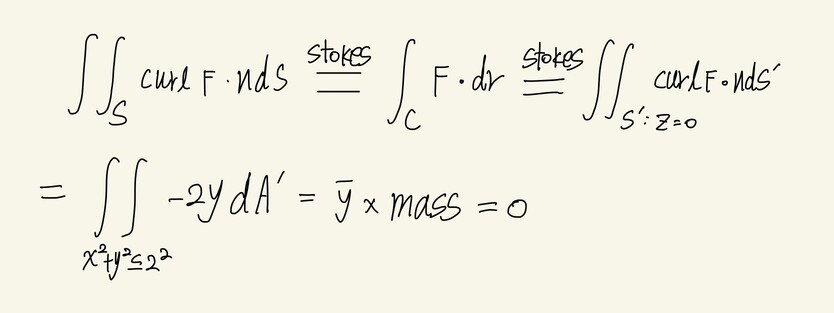 ∬_S curl F · n dS =^{stokes} ∫_C F · dr =^{stokes} ∬_{S′: z=0} curl F · n dS′
= ∬_{x²+y²≤2²} -2y dA′ = ȳ × mass = 0